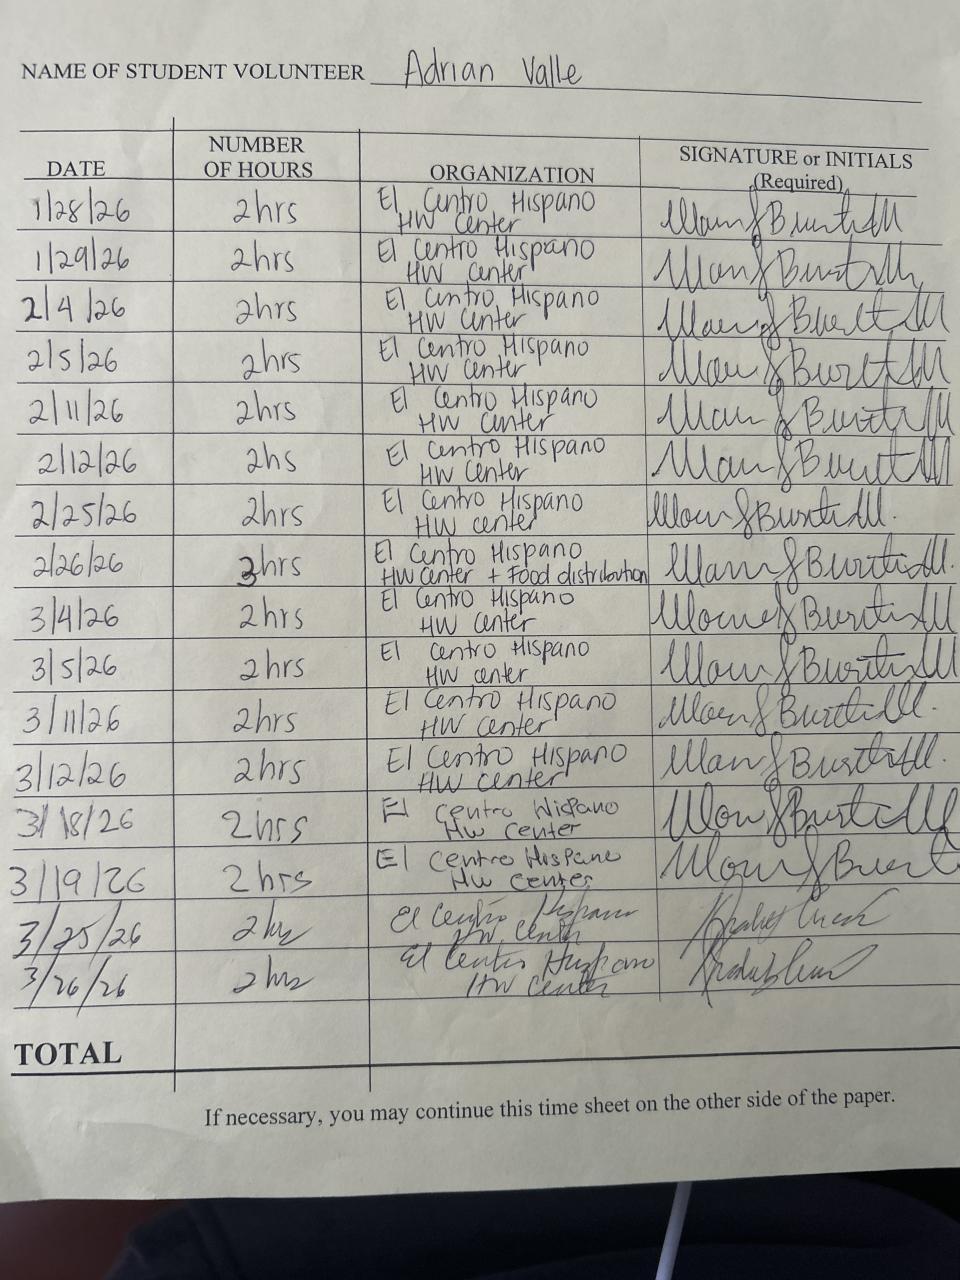 NAME OF STUDENT VOLUNTEER Adrian Valle
DATE NUMBER OF HOURS ORGANIZATION SIGNATURE or INITIALS (Required)
1/28/26 2hrs El Centro Hispano
HW Center
1/29/26 2hrs El Centro Hispano
HW Center
2/4/26 2hrs El Centro Hispano
HW Center
2/5/26 2hrs El Centro Hispano
HW Center
2/11/26 2hrs El Centro Hispano
HW Center
2/12/26 2hs El Centro Hispano
HW Center
2/25/26 2hrs El Centro Hispano
HW center
2/26/26 3hrs El Centro Hispano
HW Center + Food distribution
3/4/26 2hrs El Centro Hispano
HW Center
3/5/26 2hrs El Centro Hispano
HW center
3/11/26 2hrs El Centro Hispano
HW Center
3/12/26 2hrs El Centro Hispano
HW center
3/18/26 2hrs El Centro Hispano
HW Center
3/19/26 2hrs El Centro Hispano
HW Center
3/25/26 2hrs El Centro Hispano
HW Center
3/26/26 2hrs El Centro Hispano
HW Center
TOTAL
If necessary, you may continue this time sheet on the other side of the paper.